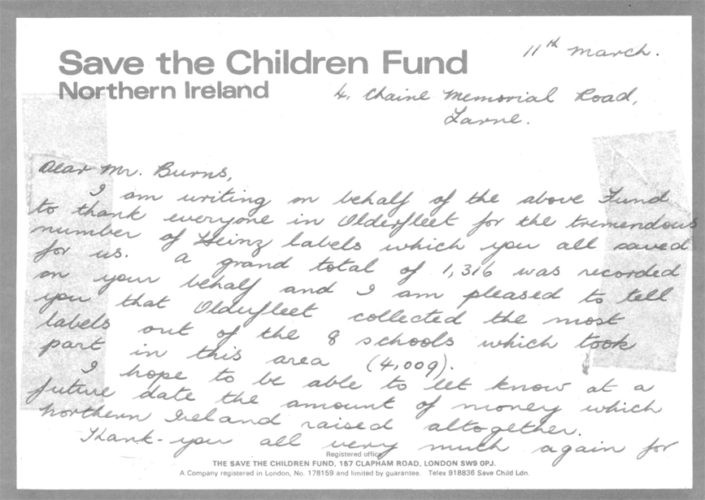 Save the Children Fund
Northern Ireland
11th March.
4, Chaine Memorial Road,
Larne.
Dear Mr. Burns,
I am writing on behalf of the above Fund
to thank everyone in Olderfleet for the tremendous
number of Heinz labels which you all saved
for us. A grand total of 1,316 was recorded
on your behalf and I am pleased to tell
you that Olderfleet collected the most
labels out of the 8 schools which took
part in this area (4,009).
I hope to be able to let know at a
future date the amount of money which
Northern Ireland raised altogether.
Thank-you all very much again for
Registered office
THE SAVE THE CHILDREN FUND, 157 CLAPHAM ROAD, LONDON SW9 0PJ.
A Company registered in London, No. 178159 and limited by guarantee. Telex 918836 Save Child Ldn.